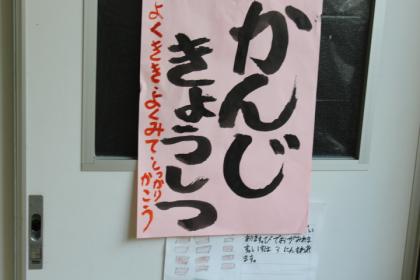 かんじ
きょうしつ
よくきき・よくみて・しっかり
かこう